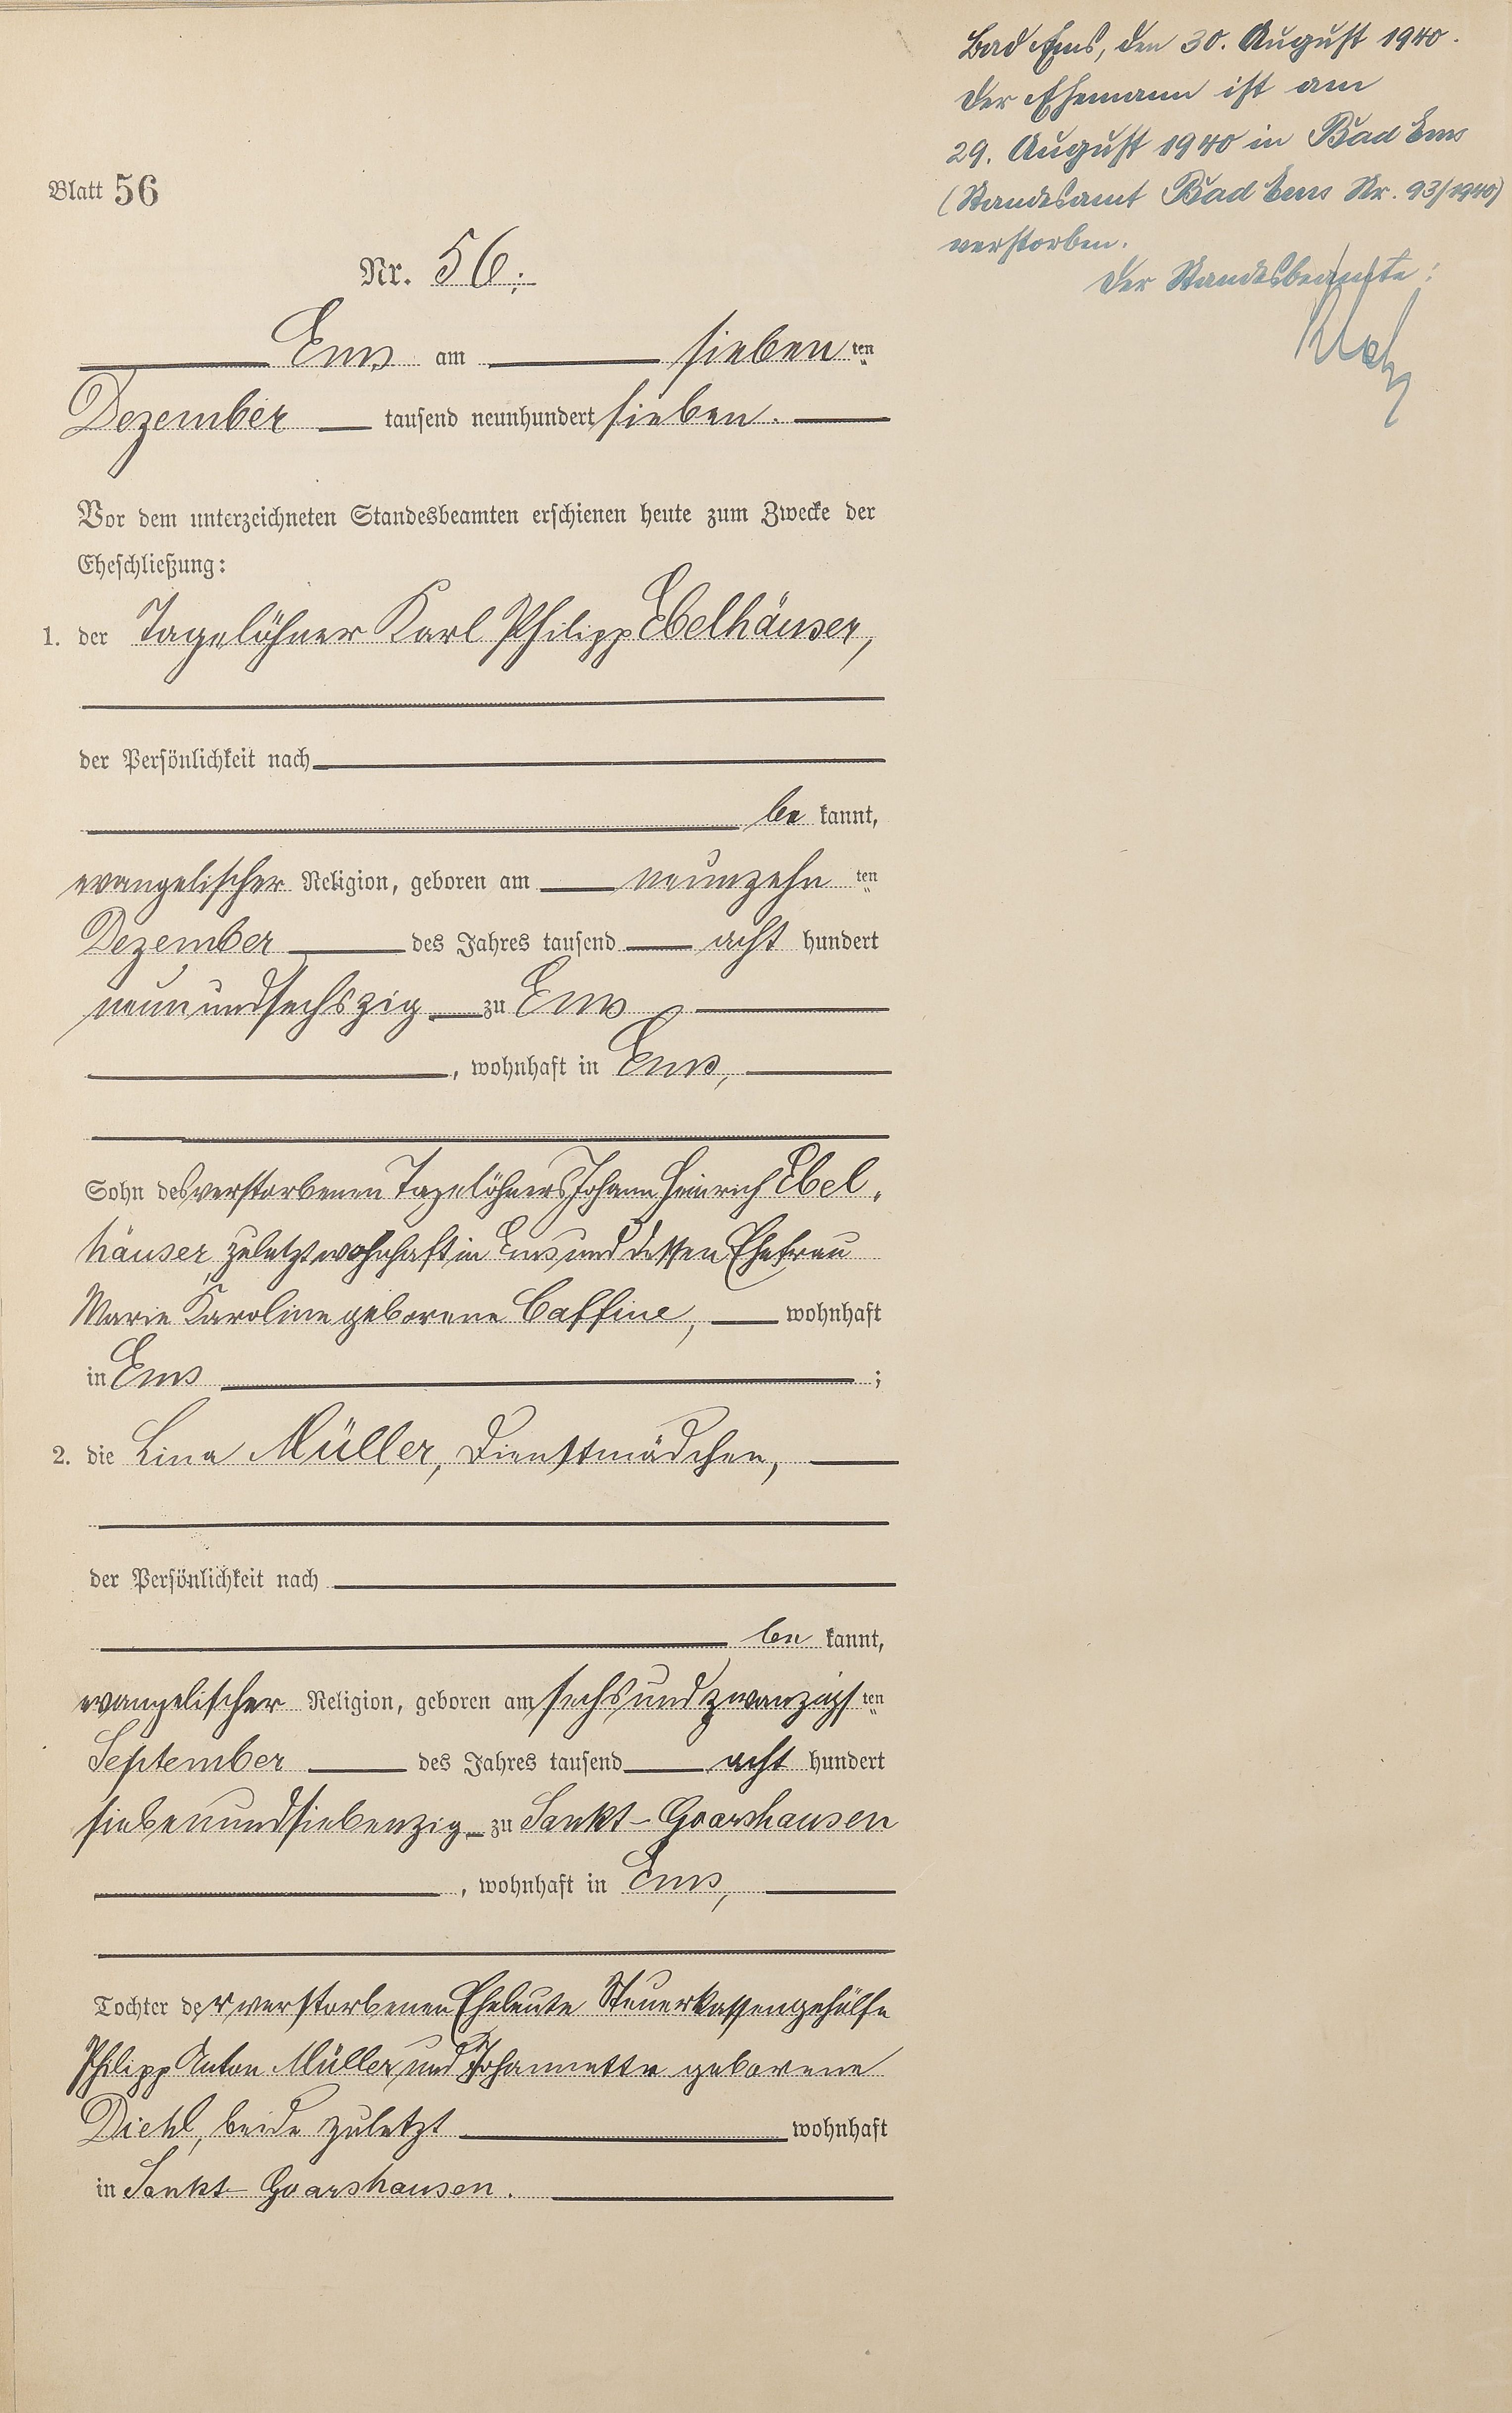 Blatt 56
Nr. 56.
Ems am siebenten
Dezember tausend neunhundert sieben.
Vor dem unterzeichneten Standesbeamten erschienen heute zum Zwecke der
Eheschließung:
1. der Tagelöhner Karl Philipp Ebelhäuser,
der Persönlichkeit nach
be kannt,
evangelischer Religion, geboren am neunzehn ten
Dezember des Jahres tausend acht hundert
neunundsechszig zu Ems
, wohnhaft in Ems,
Sohn des verstorbenen Tagelöhners Johann Heinrich Ebel-
häuser, zuletzt wohnhaft in Ems und dessen Ehefrau
Marie Karoline geborene Caffine, wohnhaft
in Ems ;
2. die Lina Müller, Dienstmädchen,
der Persönlichkeit nach
be kannt,
evangelischer Religion, geboren am sechsundzwanzigsten
September des Jahres tausend acht hundert
siebenundsiebenzig zu Sankt-Goarshausen
, wohnhaft in Ems,
Tochter der verstorbenen Eheleute Steuerkassengehülfe
Philipp Anton Müller und Johannette geborene
Diehl, beide zuletzt wohnhaft
in Sankt-Goarshausen.
Bad Ems, den 30. August 1940.
Der Ehemann ist am
29. August 1940 in Bad Ems
(Standesamt Bad Ems Nr. 93/1940)
verstorben.
Der Standesbeamte: